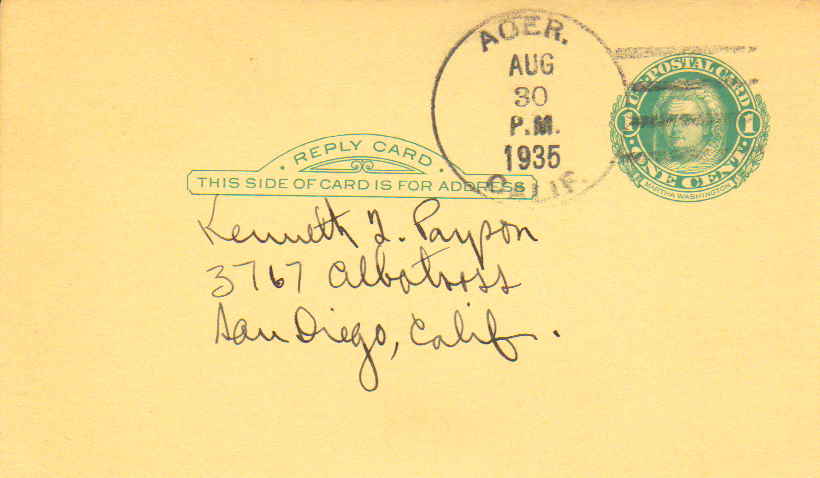 AGER.
AUG
30
P.M.
1935
CALIF.
U.S. POSTAL CARD
1 1
ONE CENT
MARTHA WASHINGTON
REPLY CARD
THIS SIDE OF CARD IS FOR ADDRESS
Kenneth L. Payson
3767 Albatross
San Diego, Calif.